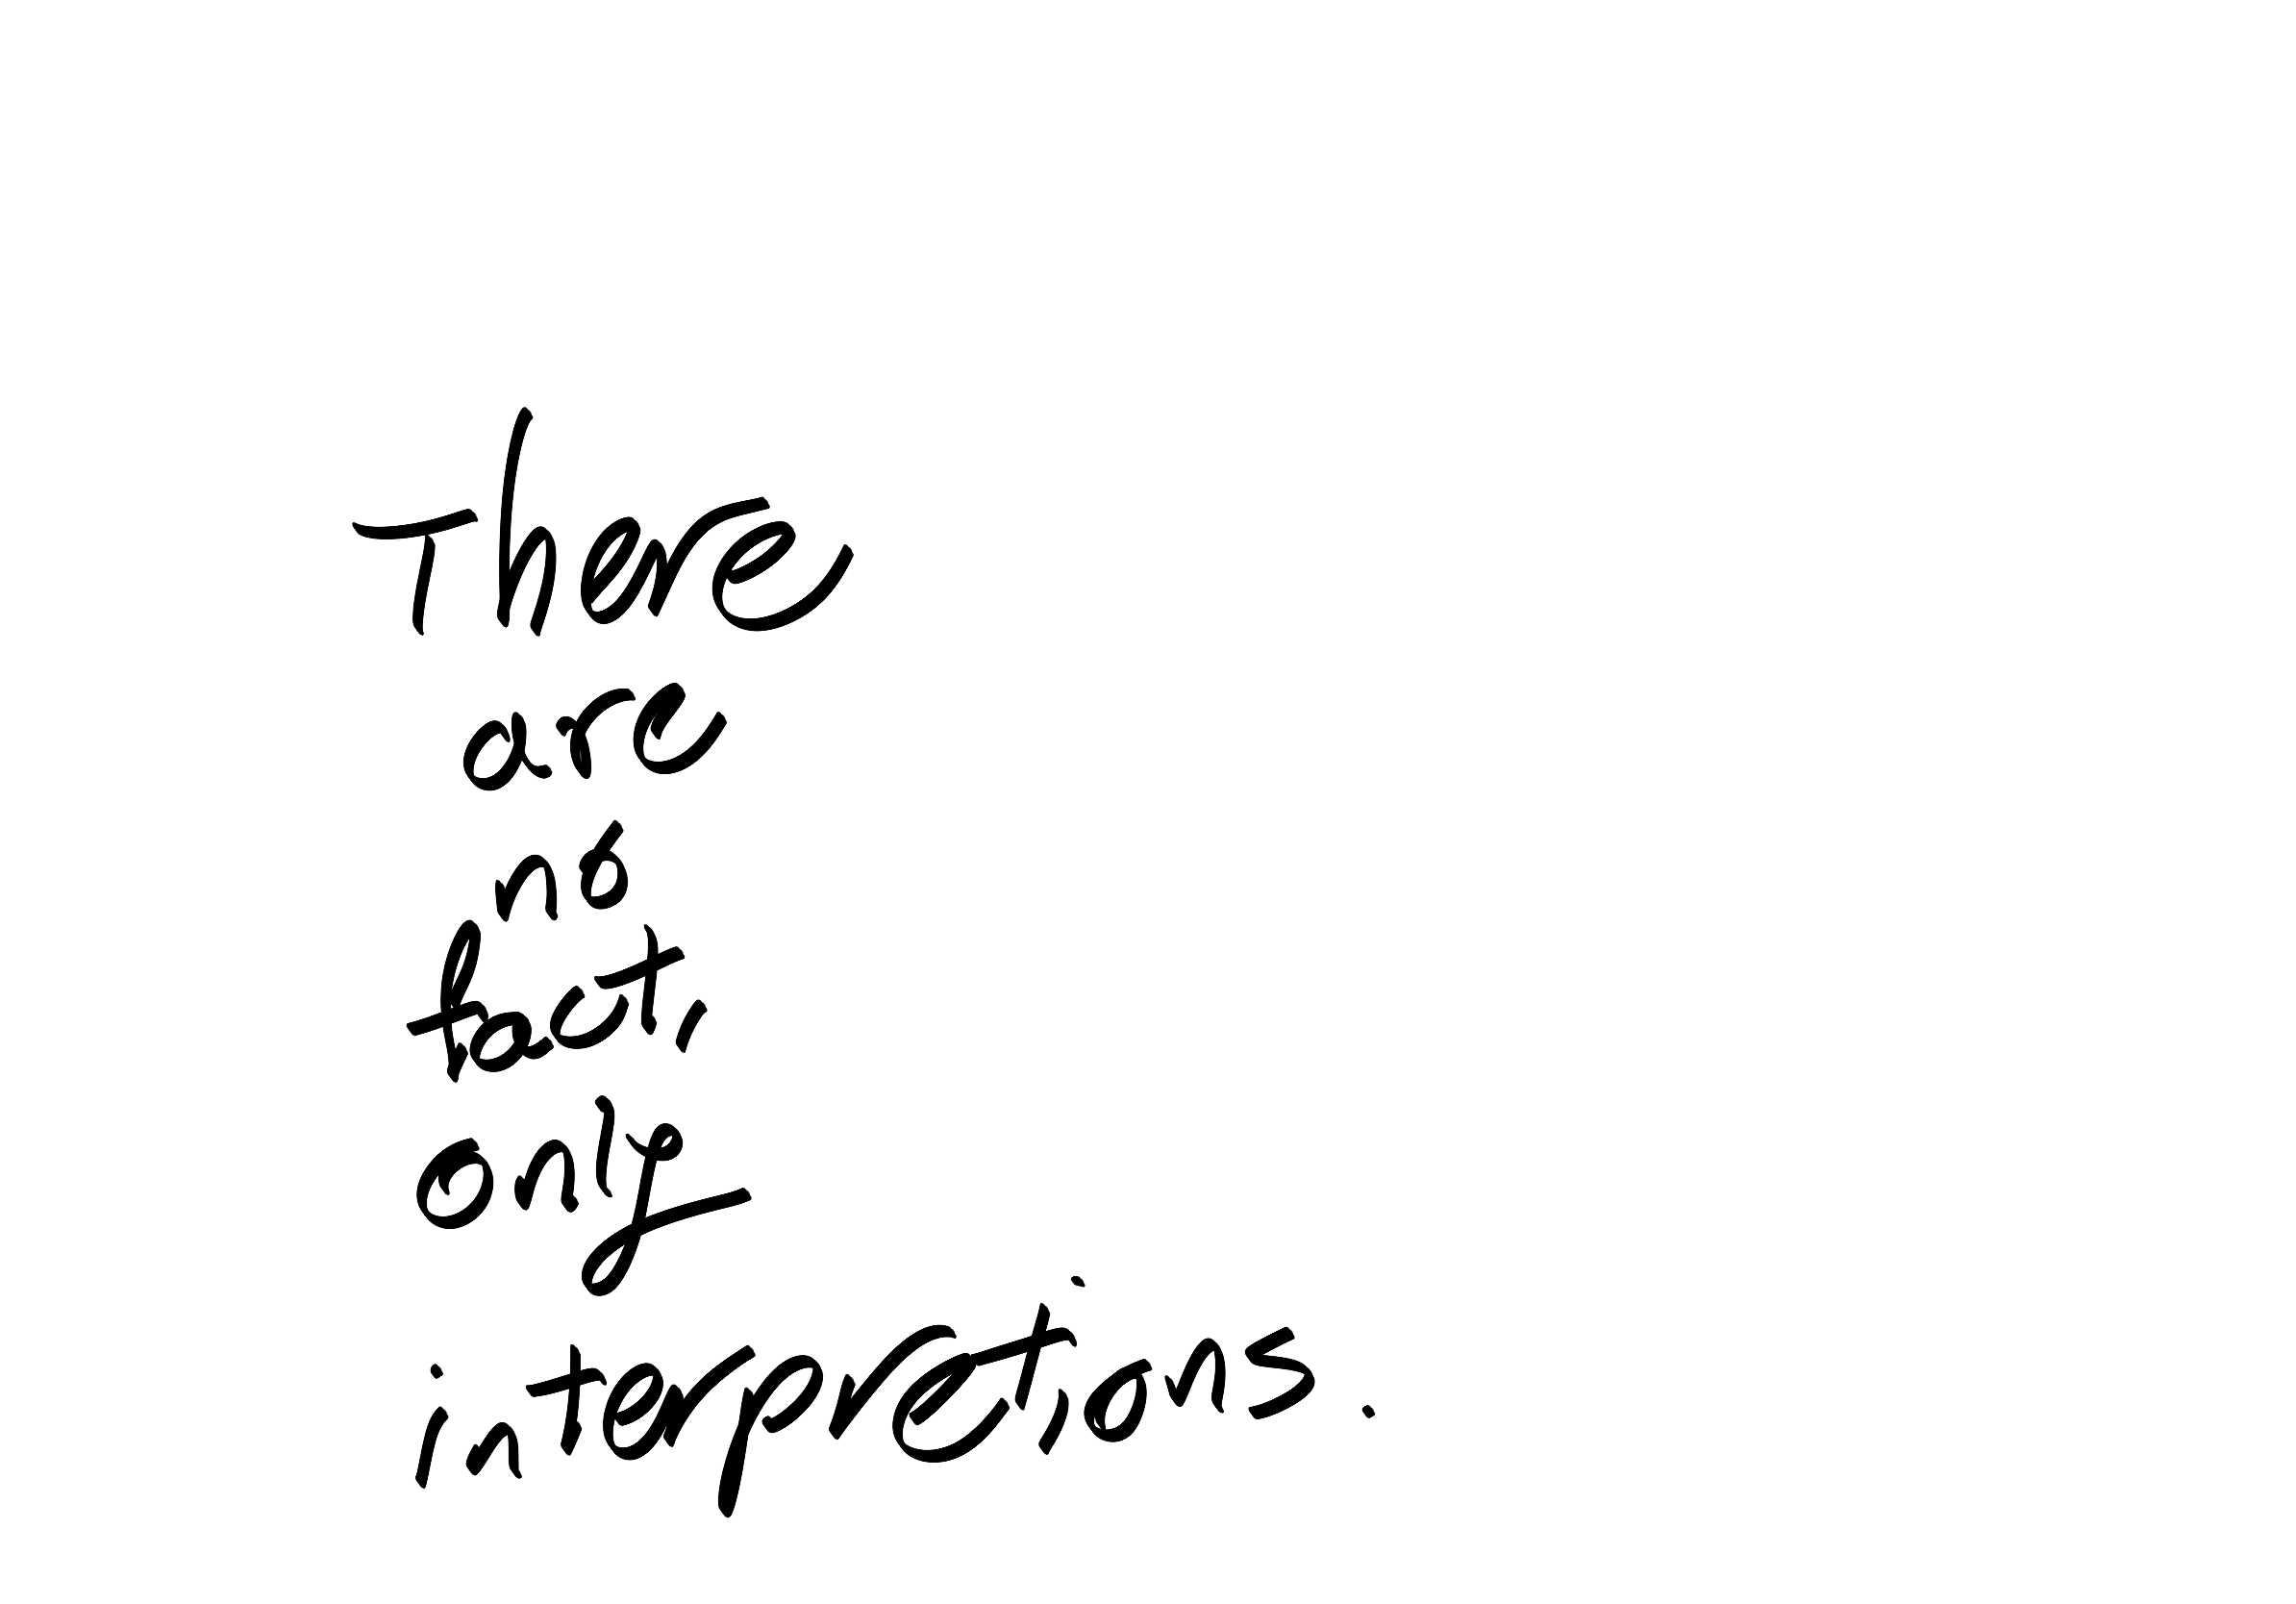 There
are
no
fact,
only
interpretions.